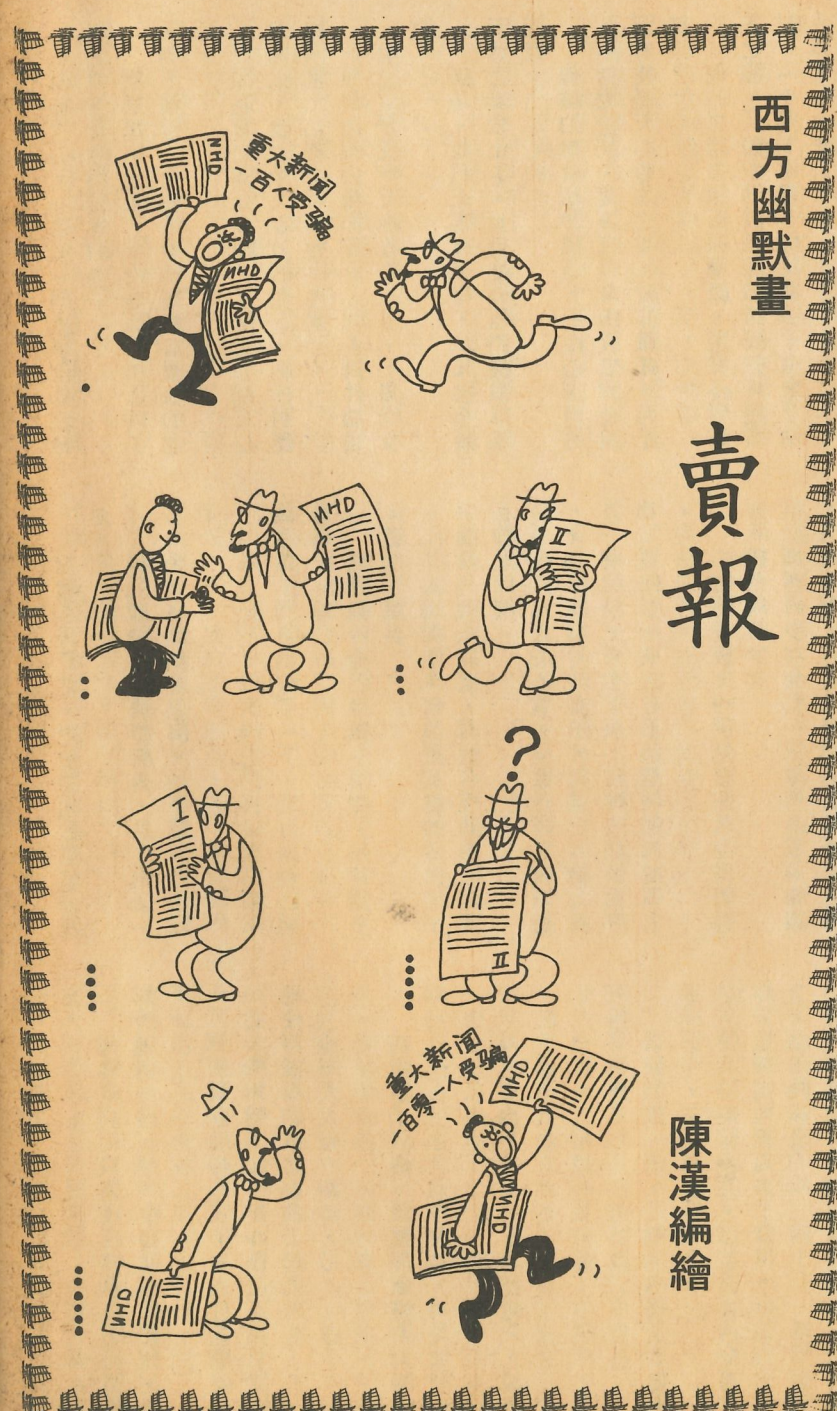 西方幽默畫
賣報
陳漢編繪
重大新闻
一百人受骗
NHD
NHD
NHD
II
I
?
II
重大新闻
一百零一人受骗
NHD
NHD
NHD